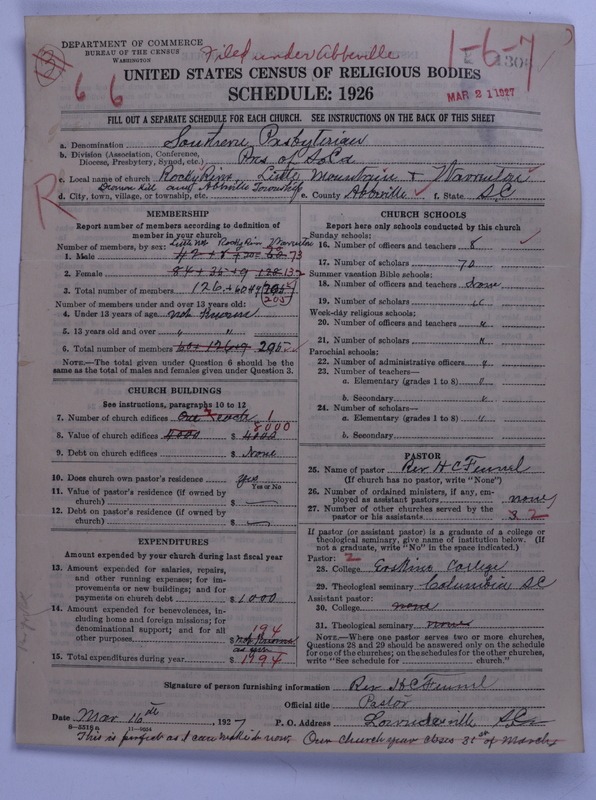 DEPARTMENT OF COMMERCE
BUREAU OF THE CENSUS
WASHINGTON
Filed under Abbeville
1-6-7
6 6
MAR 21 1927
UNITED STATES CENSUS OF RELIGIOUS BODIES
SCHEDULE: 1926
FILL OUT A SEPARATE SCHEDULE FOR EACH CHURCH. SEE INSTRUCTIONS ON THE BACK OF THIS SHEET
a. Denomination Southern Presbyterian
b. Division (Association, Conference, Diocese, Presbytery, Synod, etc.) Pres of So Ca
c. Local name of church Rocky River, Little Mountain & Warrenton
d. City, town, village, or township, etc. Township e. County Abbeville f. State S.C.
R
MEMBERSHIP
Report number of members according to definition of member in your church
Number of members, by sex: Little Mt Rocky River Warrenton
1. Male 42 + 8 + 20 = 68 73
2. Female 84 + 35 + 9 128 132
3. Total number of members 126 + 60 + 9 205
Number of members under and over 13 years old:
4. Under 13 years of age not known
5. 13 years old and over " "
6. Total number of members 60 + 126 + 9 205
NOTE.—The total given under Question 6 should be the same as the total of males and females given under Question 3.
CHURCH BUILDINGS
See instructions, paragraphs 10 to 12
7. Number of church edifices One each 1
8. Value of church edifices 4000 $ 4000 8000
9. Debt on church edifices $ None
10. Does church own pastor's residence yes
Yes or No
11. Value of pastor's residence (if owned by church) $
12. Debt on pastor's residence (if owned by church) $
EXPENDITURES
Amount expended by your church during last fiscal year
13. Amount expended for salaries, repairs, and other running expenses; for improvements or new buildings; and for payments on church debt $ 1000
14. Amount expended for benevolences, including home and foreign missions; for denominational support; and for all other purposes $ not known 194
15. Total expenditures during year $ 1994
CHURCH SCHOOLS
Report here only schools conducted by this church
Sunday schools:
16. Number of officers and teachers 8
17. Number of scholars 70
Summer vacation Bible schools:
18. Number of officers and teachers None
19. Number of scholars "
Week-day religious schools:
20. Number of officers and teachers "
21. Number of scholars "
Parochial schools:
22. Number of administrative officers "
23. Number of teachers—
a. Elementary (grades 1 to 8) "
b. Secondary "
24. Number of scholars—
a. Elementary (grades 1 to 8) "
b. Secondary
PASTOR
25. Name of pastor Rev H C Fennel
(If church has no pastor, write "None")
26. Number of ordained ministers, if any, employed as assistant pastors none
27. Number of other churches served by the pastor or his assistants 3 2
If pastor (or assistant pastor) is a graduate of a college or theological seminary, give name of institution below. (If not a graduate, write "No" in the space indicated.)
Pastor: 2
28. College Erskine College
29. Theological seminary Columbia SC
Assistant pastor:
30. College none
31. Theological seminary none
NOTE.—Where one pastor serves two or more churches, Questions 28 and 29 should be answered only on the schedule for one of the churches; on the schedules for the other churches, write "See schedule for church."
Signature of person furnishing information Rev H C Fennel
Official title Pastor
Date Mar 16th 1927 P. O. Address Lowndesville S.C.
8—5315a 11—9554
This is perfect as I can make it now. Our Church year closes 31st of March